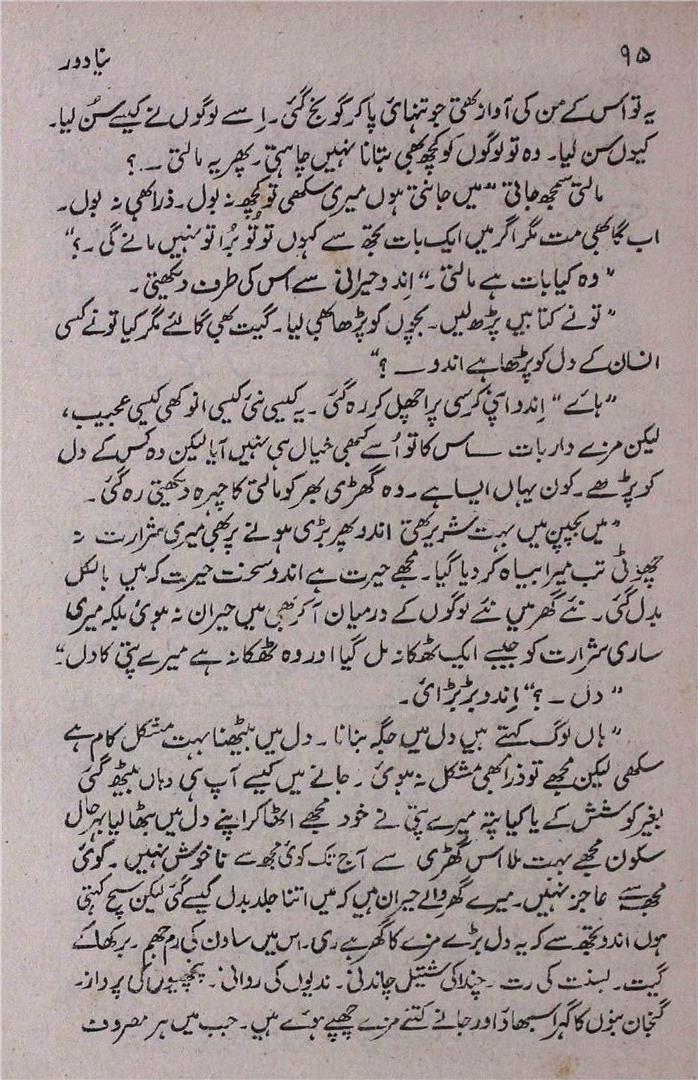 ۹۵ نیا دور
یہ تو اس کے من کی آواز تھی جو تنہائی پا کر گونج گئی۔ اِسے لوگوں نے کیسے سُن لیا۔
کیوں سن لیا۔ وہ تو لوگوں کو کچھ بھی بتانا نہیں چاہتی۔ پھر یہ مالتی ۔۔ ؟
مالتی سمجھ جاتی "میں جانتی ہوں میری سکھی تو کچھ نہ بول۔ ذرا بھی نہ بول۔
اب گا بھی مت مگر اگر میں ایک بات تجھ سے کہوں تو تُو بُرا تو نہیں مانے گی۔ ؟"
"وہ کیا بات ہے مالتی۔" اِندو حیرانی سے اس کی طرف دیکھتی۔
"تو نے کتابیں پڑھ لیں۔ بچوں کو پڑھا بھی لیا۔ گیت بھی گا لئے مگر کیا تو نے کسی
انسان کے دل کو پڑھا ہے اندو ــــ ؟"
"ہائے" اِندو اپنی کرسی پر اچھل کر رہ گئی۔ یہ کیسی نئی کیسی انوکھی کیسی عجیب،
لیکن مزے دار بات ــــ اس کا تو اُسے کبھی خیال ہی نہیں آیا لیکن وہ کس کے دل
کو پڑھے۔ کون یہاں ایسا ہے۔ وہ گھڑی بھر کو مالتی کا چہرہ دیکھتی رہ گئی۔
"میں بچپن میں بہت شریر تھی اندو پھر بڑی ہونے پر بھی میری شرارت نہ
چھوٹی تب میرا بیاہ کر دیا گیا۔ مجھے حیرت ہے اندو سخت حیرت کہ میں بالکل
بدل گئی۔ نئے گھر میں نئے لوگوں کے درمیان آ کر بھی میں حیران نہ ہوئی بلکہ میری
ساری شرارت کو جیسے ایک ٹھکانہ مل گیا اور وہ ٹھکانہ ہے میرے پتی کا دل۔"
"دل ۔ ؟" اِندو بڑبڑائی۔
"ہاں لوگ کہتے ہیں دل میں جگہ بنانا۔ دل میں بیٹھنا بہت مشکل کام ہے
سکھی لیکن مجھے تو ذرا بھی مشکل نہ ہوئی۔ جانے میں کیسے آپ ہی وہاں بیٹھ گئی
بغیر کوشش کے یا کیا پتہ میرے پتی نے خود مجھے اٹھا کر اپنے دل میں بٹھا لیا بہرحال
سکون مجھے بہت ملا اس گھڑی سے آج تک کوئی مجھ سے ناخوش نہیں۔ کوئی
مجھ سے عاجز نہیں۔ میرے گھر والے حیران ہیں کہ میں اتنا جلد بدل کیسے گئی لیکن سچ کہتی
ہوں اندو تجھ سے کہ یہ دل بڑے مزے کا گھر ہے ری۔ اس میں ساون کی رم جھم۔ برکھا کے
گیت۔ بسنت کی رت۔ چندا کی شیتل چاندنی۔ ندیوں کی روانی۔ پنچھیوں کی پرواز۔
گنجان بنوں کا گہرا سبھاؤ اور جانے کتنے مزے چھپے ہوئے ہیں۔ جب میں ہر مصروف